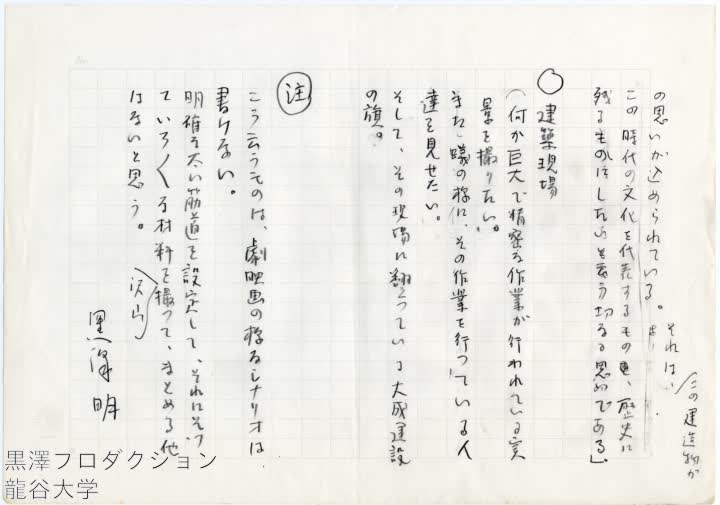 の思いが込められている。
それは、この建造物が
この時代の文化を代表するもの、歴史に
残るものにしたいと云う切なる思いである」
○ 建築現場
(何か巨大で精密な作業が行われている実
景を撮りたい。
また、蟻の様に、その作業を行っている人
達を見せたい。
そして、その現場に翻っている大成建設
の旗。
注
こう云うものは、劇映画の様なシナリオは
書けない。
明確な太い筋道を設定して、それにそっ
ていろ〱な材料を沢山撮って、まとめる他
はないと思う。
黒澤 明
黒澤プロダクション
龍谷大学